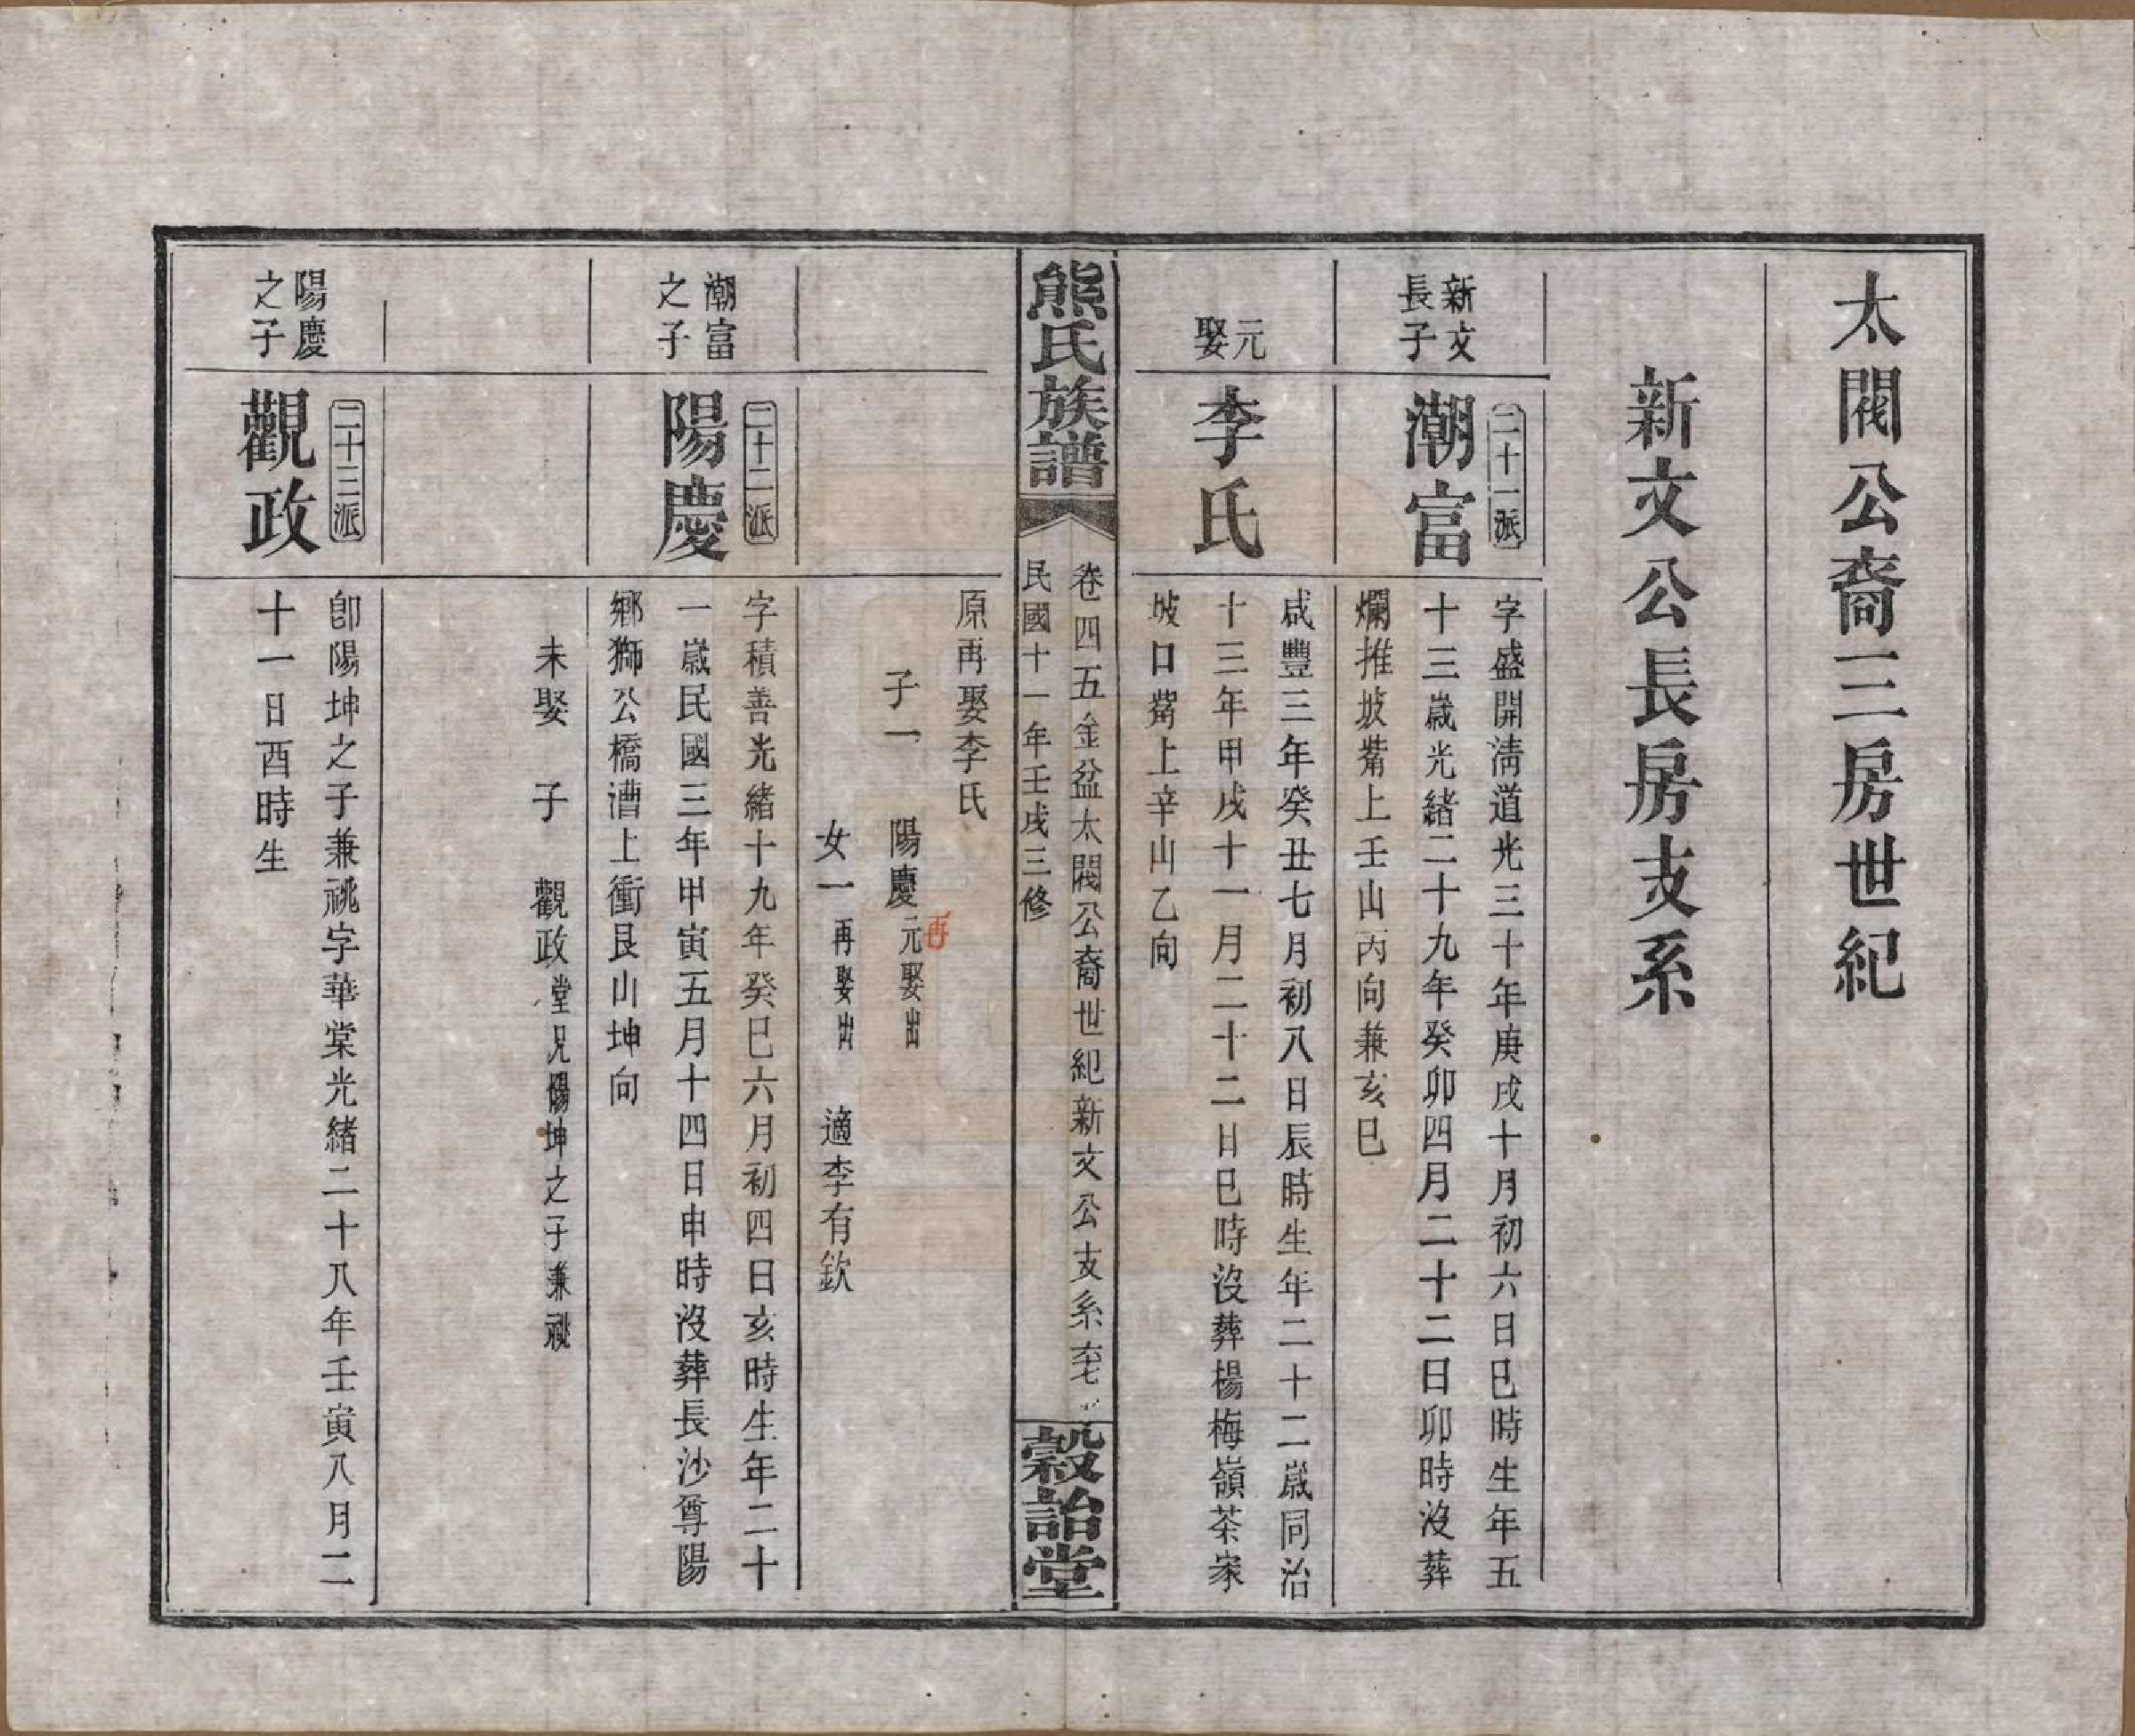 太閥公裔三房世紀
新文公長房支系
新文
長子
二十一派
潮富
字盛開淸道光三十年庚戌十月初六日巳時生年五
十三歲光緒二十九年癸卯四月二十二日卯時沒葬
爛推坡觜上壬山丙向兼亥巳
元
娶
李氏
咸豐三年癸丑七月初八日辰時生年二十二歲同治
十三年甲戌十一月二十二日巳時沒葬楊梅嶺茶家
坡口觜上辛山乙向
熊氏族譜
卷四五金盆太閥公裔世紀新文公支系
民國十一年壬戌三修
穀詒堂
原再娶李氏
子一 陽慶元娶出
再
女一再娶出 適李有欽
潮富
之子
二十二派
陽慶
字積善光緒十九年癸巳六月初四日亥時生年二十
一歲民國三年甲寅五月十四日申時沒葬長沙尊陽
鄉獅公橋漕上衝艮山坤向
未娶 子 觀政堂兄陽坤之子兼祧
陽慶
之子
二十三派
觀政
卽陽坤之子兼祧字華棠光緒二十八年壬寅八月二
十一日酉時生